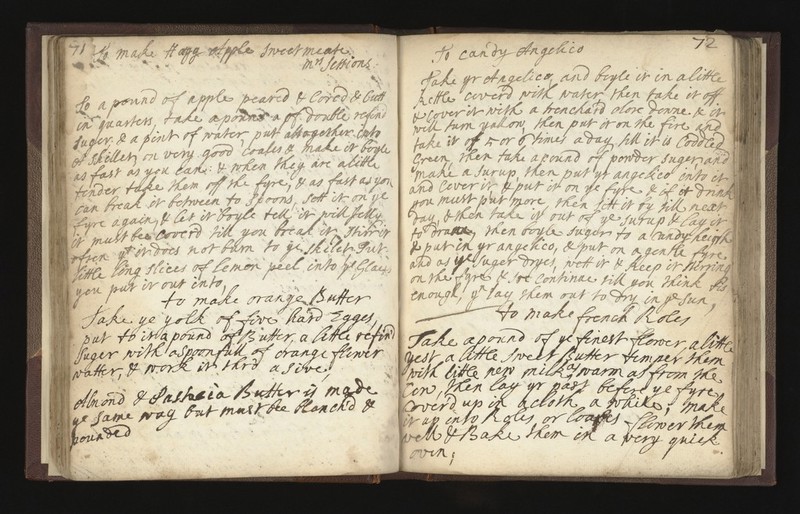 71 To make Hagg Apple Sweetmeate
Mrs Sessions.
To a pound of apple peared & Cored & Cutt
in quarters, take a pound of double refind
Suger & a pint of water put alltogether into
a Skillet on very good coales & make it boyle
as fast as you can & when they are a little
tender take them off the fyre, & as fast as you
can break it between to spoons, sett it on ye
fyre again, & let it boyle tell it will Jelly
it must bee Coverd till you break it, Stir it
often yt it does not burn to ye skilet Put
little long slices of Lemon peel into ye Glasses
you put it out into
To make orange Butter
Take ye yolk of five hard Egges,
put to it a pound of Butter, a little refind
Suger with a spoonfull of orange flower
watter, & work it thro a Sive,
Almond & Pastacia Butter is made
ye same way but must bee blanch'd &
pounded
72
To candy Angelico
Take yr Angelico, and boyle it in a little
kettle coverd with water then take it off
& cover it with a trenchard close downe & it
will turn yallow, then put it on the fire and
take it of 5 or 6 times a day till it is Coddled
Green, then take a pound of powder Suger, and
make a Surup, then put yr angelico into it
and Cover it & put it on ye fyre & if it drink
you must put more, then sett it by till next
day, & then take it out of ye surup & lay it
to drane, then boyle Suger to a Candy heigth
& put in yr angelico, & put on a gentle fyre
and as ye Suger dryes, wett it & keep it stirring
on the fyre & soe continue till you think its
enough, yn lay them out to dry in ye Sun,
To make french Roles
Take a pound of ye finest flower, a little
yest a little Sweet Butter temper them
with little new milk as warm as from the
Cow, then lay yr past before ye fyre
Cover'd up in a cloth a while, make
it up into Roles or loafes flower them
well & Bake them in a very quick
oven;